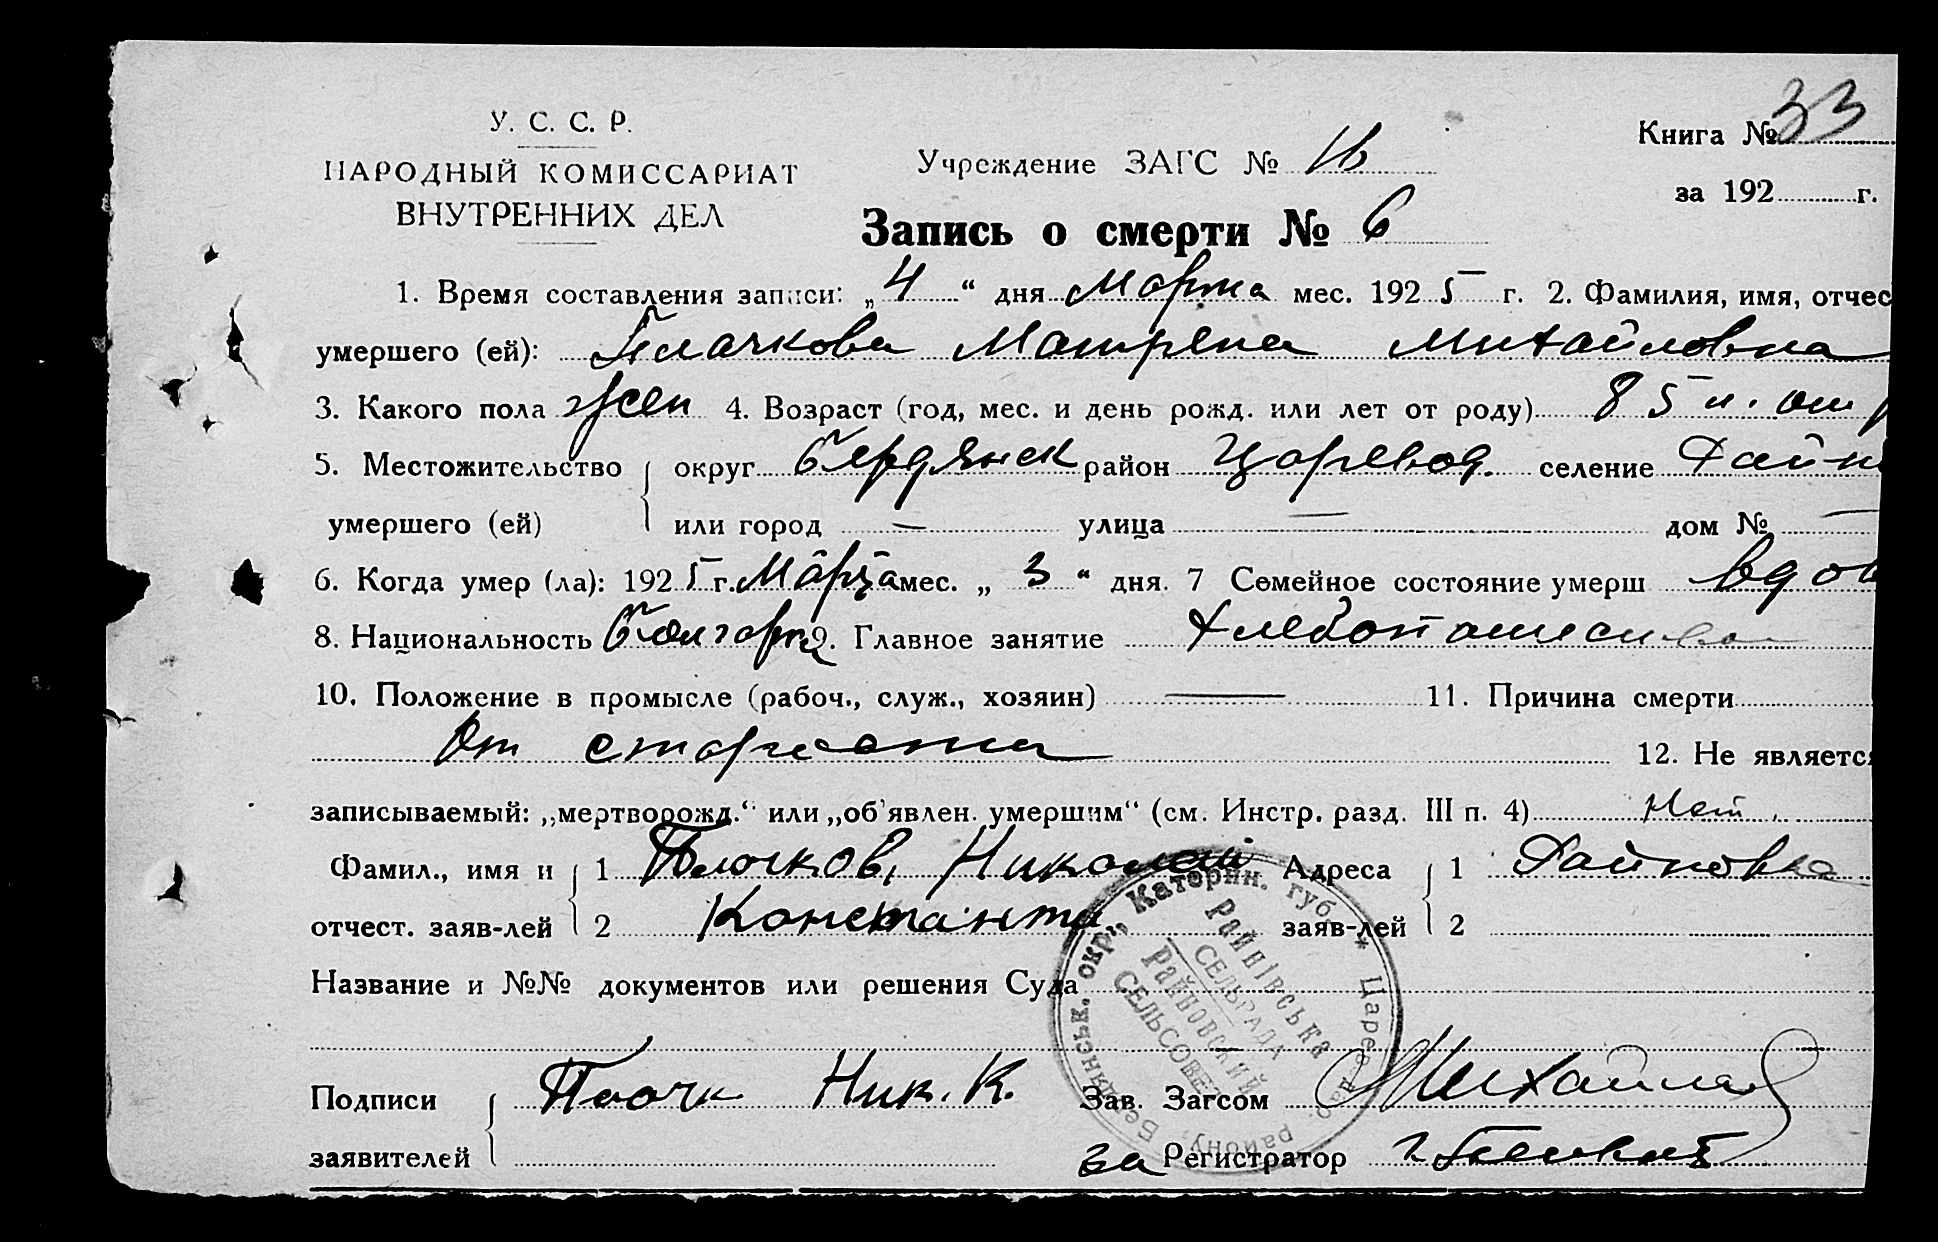 У. С. С. Р.
НАРОДНЫЙ КОМИССАРИАТ
ВНУТРЕННИХ ДЕЛ
Учреждение ЗАГС №
Книга № 33
за 192 г.
Запись о смерти № 6
1. Время составления записи: „4“ дня Марта мес. 1925 г. 2. Фамилия, имя, отчес
умершего (ей): Матрена Михайловна
3. Какого пола жен 4. Возраст (год, мес. и день рожд. или лет от роду) 85 л. от р
5. Местожительство округ Бердянск район Царевод. селение Райн
умершего (ей) или город — улица — дом № —
6. Когда умер (ла): 1925 г. Марта мес. „3“ дня. 7 Семейное состояние умерш вдов
8. Национальность Болгарка 9. Главное занятие Хлебопашество
10. Положение в промысле (рабоч., служ., хозяин) — 11. Причина смерти
От старости
12. Не является
записываемый: „мертворожд.“ или „об'явлен. умершим“ (см. Инстр. разд. III п. 4) Нет
Фамил., имя и 1 Плачков, Николай Адреса 1 Райновка
отчест. заяв-лей 2 Константи заяв-лей 2
Название и №№ документов или решения Суда
Подписи Плачк Ник. К. Зав. Загсом Михайлов
заявителей за Регистратор
Бердянськ. окр., Катерин. губ. * Царев-дас. району
Райнівська
СЕЛЬРАДА
Райновский
СЕЛЬСОВЕТ